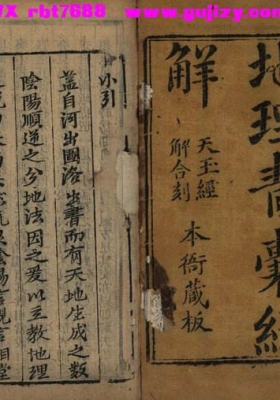 rbt7688 www.gujizy.com
地理青囊經
解
天玉經
解合刻
本衙藏板
小引
蓋自河出圖洛出書而有天地生成之數
陰陽順逆之分地法因之爰以立教地理